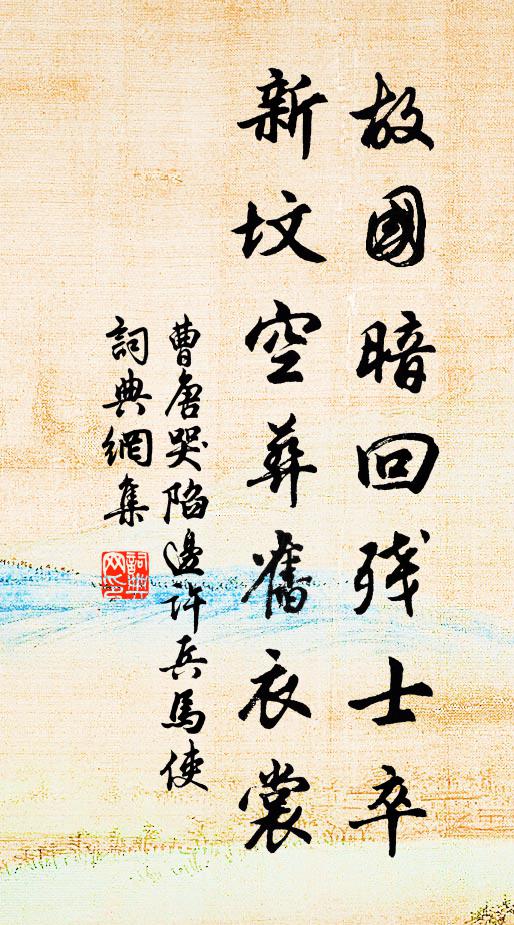 故國暗回殘士卒
新墳空葬舊衣裳
曹唐哭陷邊許兵馬使
詞典網集